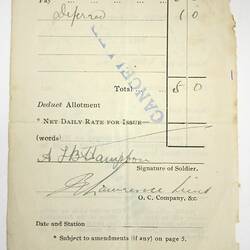 Pay
Deferred 1 0
CANCELLED
Total 5 0
Deduct Allotment
* NET DAILY RATE FOR ISSUE
(words)
Signature of Soldier.
O. C. Company, &c.
Date and Station
* Subject to amendments (if any) on page 5.